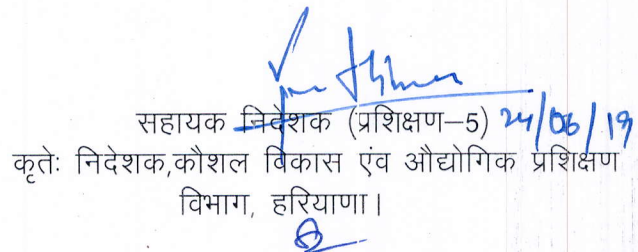 सहायक निदेशक (प्रशिक्षण–5) 24/06/19
कृतेः निदेशक,कौशल विकास एंव औद्योगिक प्रशिक्षण
विभाग, हरियाणा।